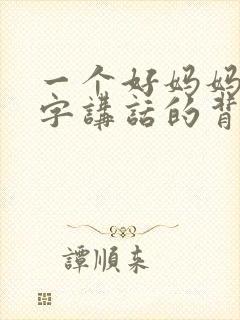 一个好妈妈
字講話的背
譚順来